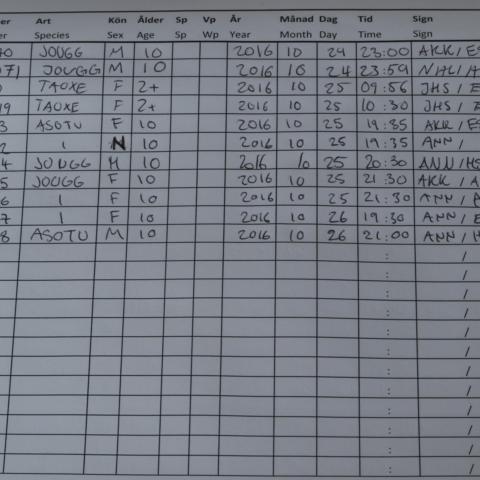 er Art Kön Ålder Sp Vp År Månad Dag Tid Sign
er Species Sex Age Sp Wp Year Month Day Time Sign
70 JOUGG M 10 2016 10 24 23:00 AKK/ES
071 JOUGG M 10 2016 10 24 23:59 NHL/
TAOXE F 2+ 2016 10 25 09:56 JHS/E
19 TAOXE F 2+ 2016 10 25 10:30 JHS/E
3 ASOTU F 10 2016 10 25 19:35 AKK/ES
2 1 10 2016 10 25 19:35 ANN/
4 JOUGG M 10 2016 10 25 20:30 ANN/HS
5 JOUGG F 10 2016 10 25 21:30 AKK/A
6 1 F 10 2016 10 25 21:30 ANN/
7 1 F 10 2016 10 26 19:30 ANN/E
8 ASOTU M 10 2016 10 26 21:00 ANN/H
: /
: /
: /
: /
: /
: /
: /
: /
: /
: /
: /
: /